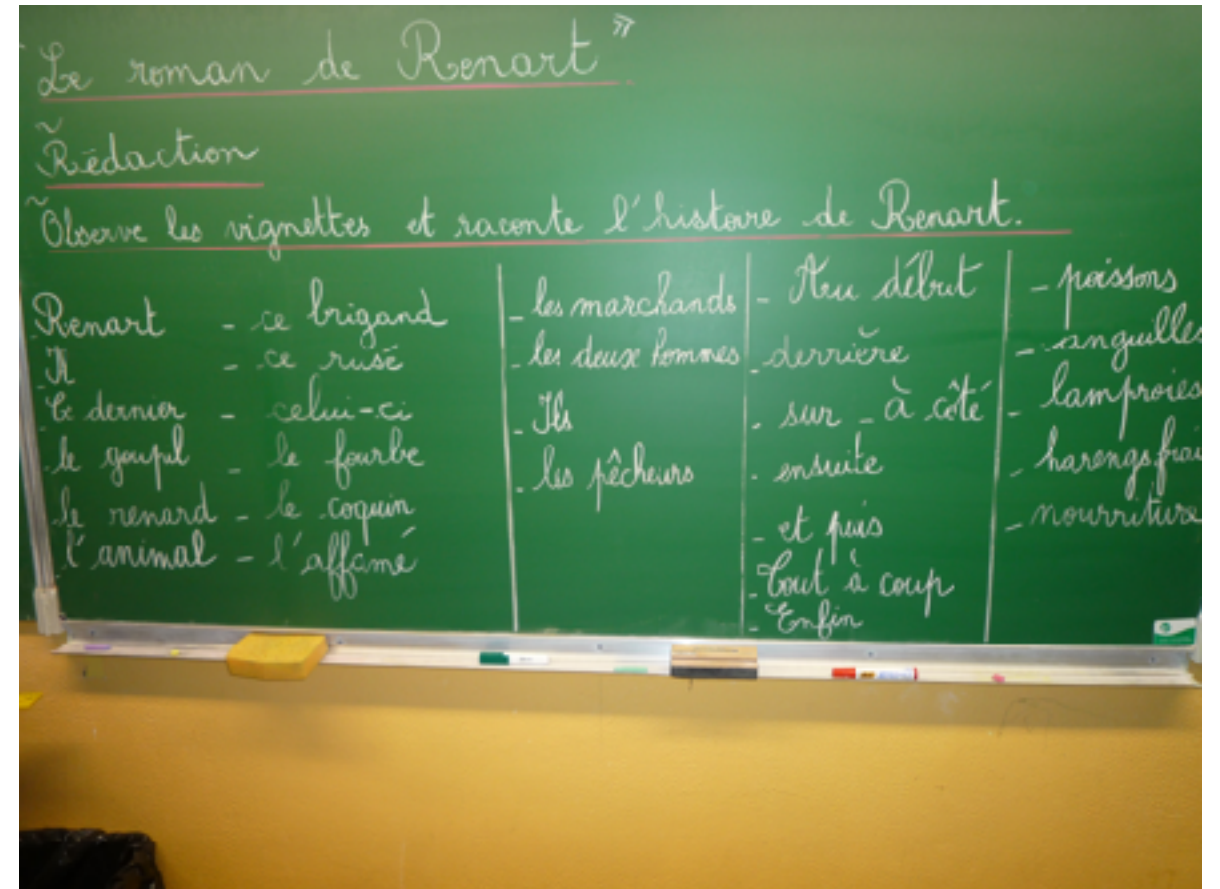 "Le roman de Renart"
Rédaction
Observe les vignettes et raconte l'histoire de Renart.
Renart - ce brigand
- Il - ce rusé
- Ce dernier - celui-ci
- le goupil - le fourbe
- le renard - le coquin
- l'animal - l'affamé
- les marchands
- les deux hommes
- Ils
- les pêcheurs
- Au début
- derrière
- sur - à côté
- ensuite
- et puis
- Tout à coup
- Enfin
- poissons
- anguilles
- lamproies
- harengs frai
- nourriture